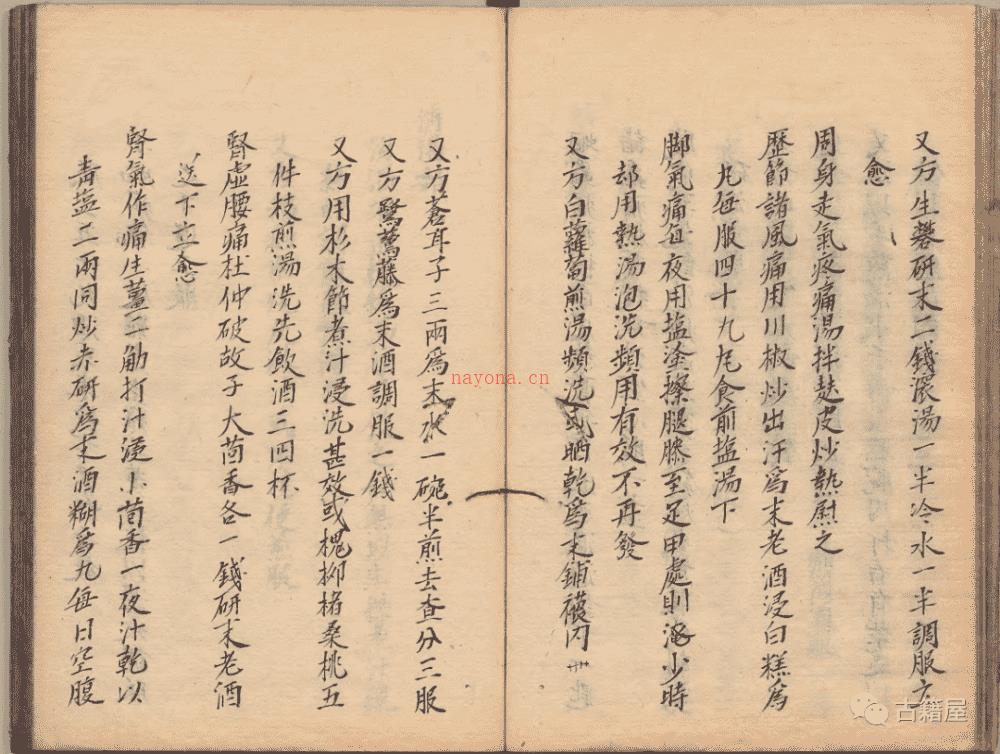 又方生礬研末二錢滾湯一半冷水一半調服立
愈
周身走氣疼痛湯拌麩皮炒熱熨之
歷節諸風痛用川椒炒出汗為末老酒浸白糕為
丸每服四十九丸食前塩湯下
脚氣痛每夜用塩塗擦腿膝至足甲處則淹少時
却用熱湯泡洗頻用有效不再發
又方白蘿蔔煎湯頻洗或晒乾為末鋪襪内
又方蒼耳子三兩為末水一碗半煎去查分三服
又方鷺鷥藤為末酒調服一錢
又方用杉木節煮汁浸洗甚效或槐柳楮桑桃五
件枝煎湯洗先飲酒三四杯
腎虛腰痛杜仲破故子大茴香各一錢研末老酒
送下立愈
腎氣作痛生薑二觔打汁浸小茴香一夜汁乾以
青塩二兩同炒赤研為末酒糊為九每日空腹
nayona.cn
古籍屋